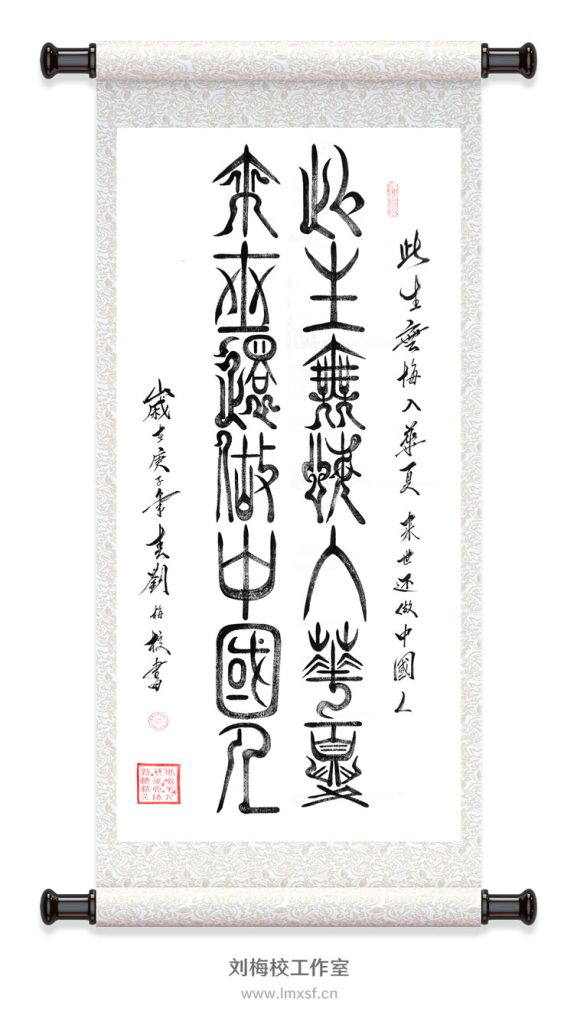 此生無悔入華夏 来世还做中國人
此生無悔入華夏
來世還做中國人
歲在庚子年春劉梅校書
刘梅校工作室
www.lmxsf.cn